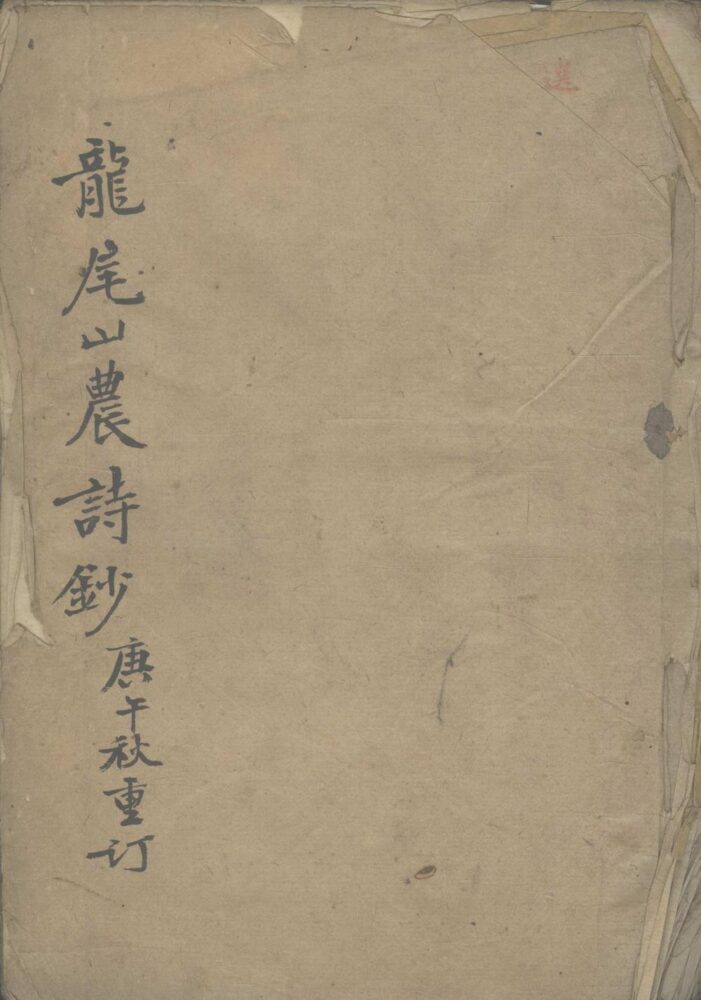 選
龍尾山農詩鈔
庚午秋重订